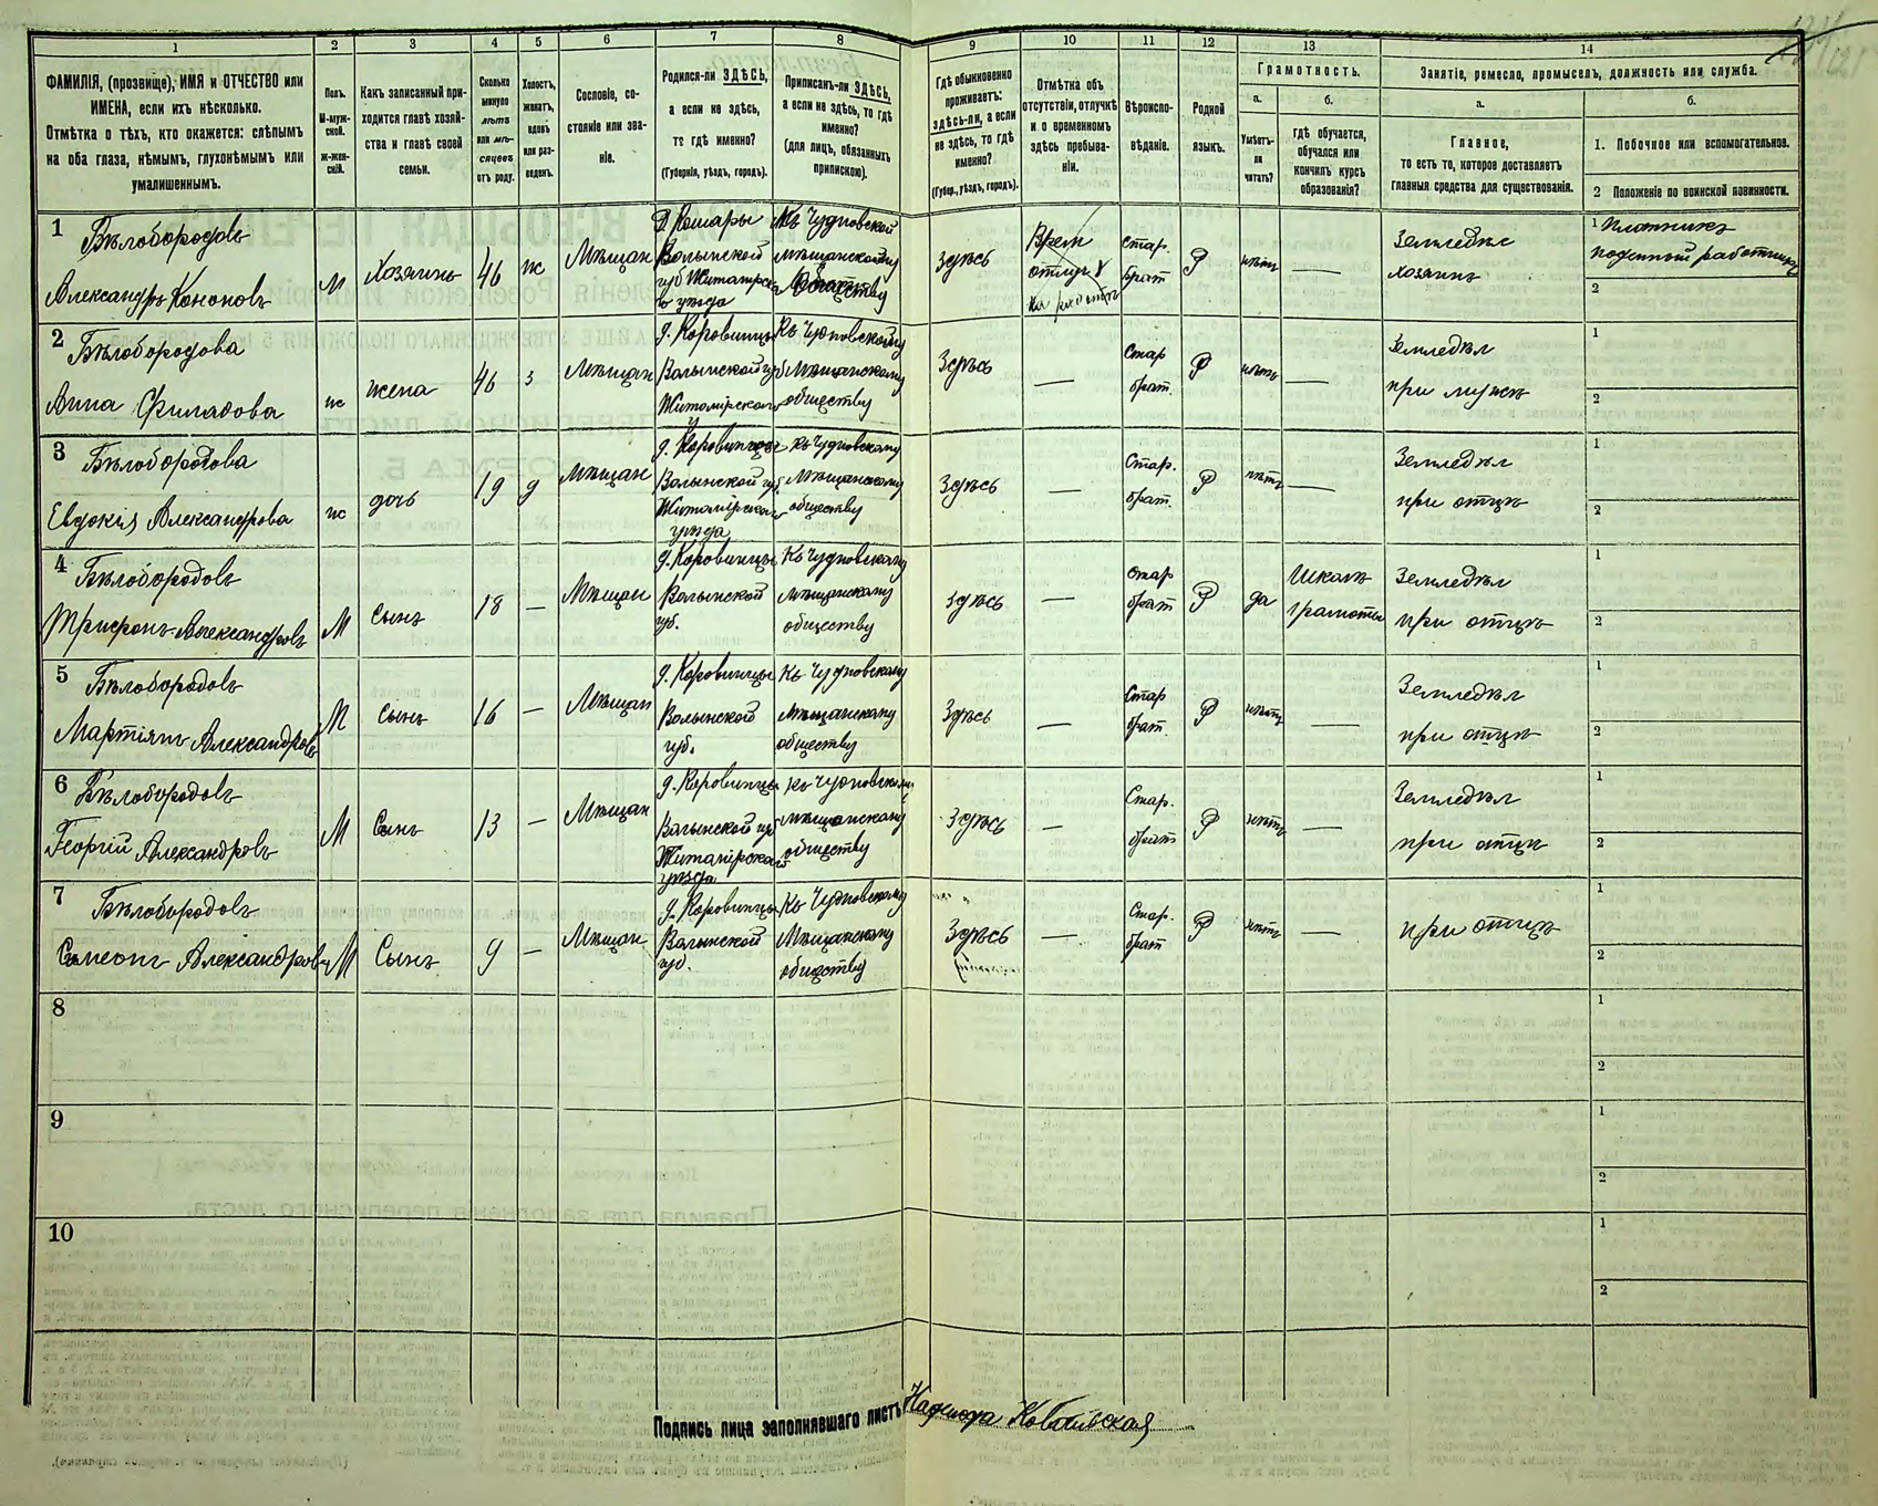 1
2
3
4
5
6
7
8
9
10
11
12
13
14
ФАМИЛІЯ, (прозвище), ИМЯ и ОТЧЕСТВО или
ИМЕНА, если ихъ нѣсколько.
Отмѣтка о тѣхъ, кто окажется: слѣпымъ
на оба глаза, нѣмымъ, глухонѣмымъ или
умалишеннымъ.
Полъ.
М-муж-
ской.
Ж-жен-
скій.
Какъ записанный при-
ходится главѣ хозяй-
ства и главѣ своей
семьи.
Сколько
минуло
лѣтъ
или мѣ-
сяцевъ
отъ роду.
Холостъ,
женатъ,
вдовъ
или раз-
веденъ.
Сословіе, со-
стояніе или зва-
ніе.
Родился-ли ЗДѢСЬ,
а если не здѣсь,
то гдѣ именно?
(Губернія, уѣздъ, городъ).
Приписанъ-ли ЗДѢСЬ,
а если не здѣсь, то гдѣ
именно?
(для лицъ, обязанныхъ
припискою).
Гдѣ обыкновенно
проживаетъ:
здѣсь-ли, а если
не здѣсь, то гдѣ
именно?
(Губер., уѣздъ, городъ).
Отмѣтка объ
отсутствіи, отлучкѣ
и о временномъ
здѣсь пребыва-
ніи.
Вѣроиспо-
вѣданіе.
Родной
языкъ.
Грамотность.
а.
Умѣетъ-
ли
читать?
б.
гдѣ обучается,
обучался или
кончилъ курсъ
образованія?
Занятіе, ремесло, промыселъ, должность или служба.
а.
Главное,
то есть то, которое доставляетъ
главныя средства для существованія.
б.
1. Побочное или вспомогательное.
2 Положеніе по воинской повинности.
1 Бѣлобородовъ
Александръ Кононовъ
М
Хозяинъ
46
ж
Мѣщан
Д Кошары
Волынской
губ Житомірск
уѣзда
Къ Чудновской
мѣщанскому
обществу
Здѣсь
Врем
отлуч
на работѣ
Стар
брат
Р
нѣтъ
—
Земледѣл
хозяинъ
1 Плотникъ
поденный работникъ
2
2 Бѣлобородова
Анна
ж
жена
46
з
Мѣщан
д. Коровинцы
Волынской губ
Житомірскаго
у
Къ Чудновскому
Мѣщанскому
обществу
Здѣсь
—
Стар
брат.
Р
нѣтъ
—
Земледѣл
при мужѣ
1
2
3 Бѣлобородова
Евдокія Александрова
ж
дочь
19
д
Мѣщан
д. Коровинцы
Волынской губ.
Житомірскаго
уѣзда
Къ Чудновскому
Мѣщанскому
обществу
Здѣсь
—
Стар.
брат.
Р
нѣтъ
—
Земледѣл
при отцѣ
1
2
4 Бѣлобородовъ
Трифонъ Александровъ
М
Сынъ
18
—
Мѣщан
д. Коровинцы
Волынской
губ.
Къ Чудновскому
мѣщанскому
обществу
здѣсь
—
стар
брат
Р
да
Школѣ
грамоты
Земледѣл
при отцѣ
1
2
5 Бѣлобородовъ
Мартіянъ Александровъ
М
Сынъ
16
—
Мѣщан
д. Коровинцы
Волынской
губ.
Къ Чудновскому
Мѣщанскому
обществу
Здѣсь
—
Стар
брат.
Р
нѣтъ
—
Земледѣл
при отцѣ
1
2
6 Бѣлобородовъ
Георгій Александровъ
М
Сынъ
13
—
Мѣщан
д. Коровинцы
Волынской губ
Житомірскаго
уѣзда
Къ Чудновскому
мѣщанскому
обществу
Здѣсь
—
Стар.
брат
Р
нѣтъ
—
Земледѣл
при отцѣ
1
2
7 Бѣлобородовъ
Симеонъ Александровъ
М
Сынъ
9
—
Мѣщан
д. Коровинцы
Волынской
губ.
Къ Чудновскому
Мѣщанскому
обществу
Здѣсь
—
Стар.
брат
Р
нѣтъ
—
при отцѣ
1
2
8
1
2
9
1
2
10
1
2
Подпись лица заполнявшаго листъ Надежда